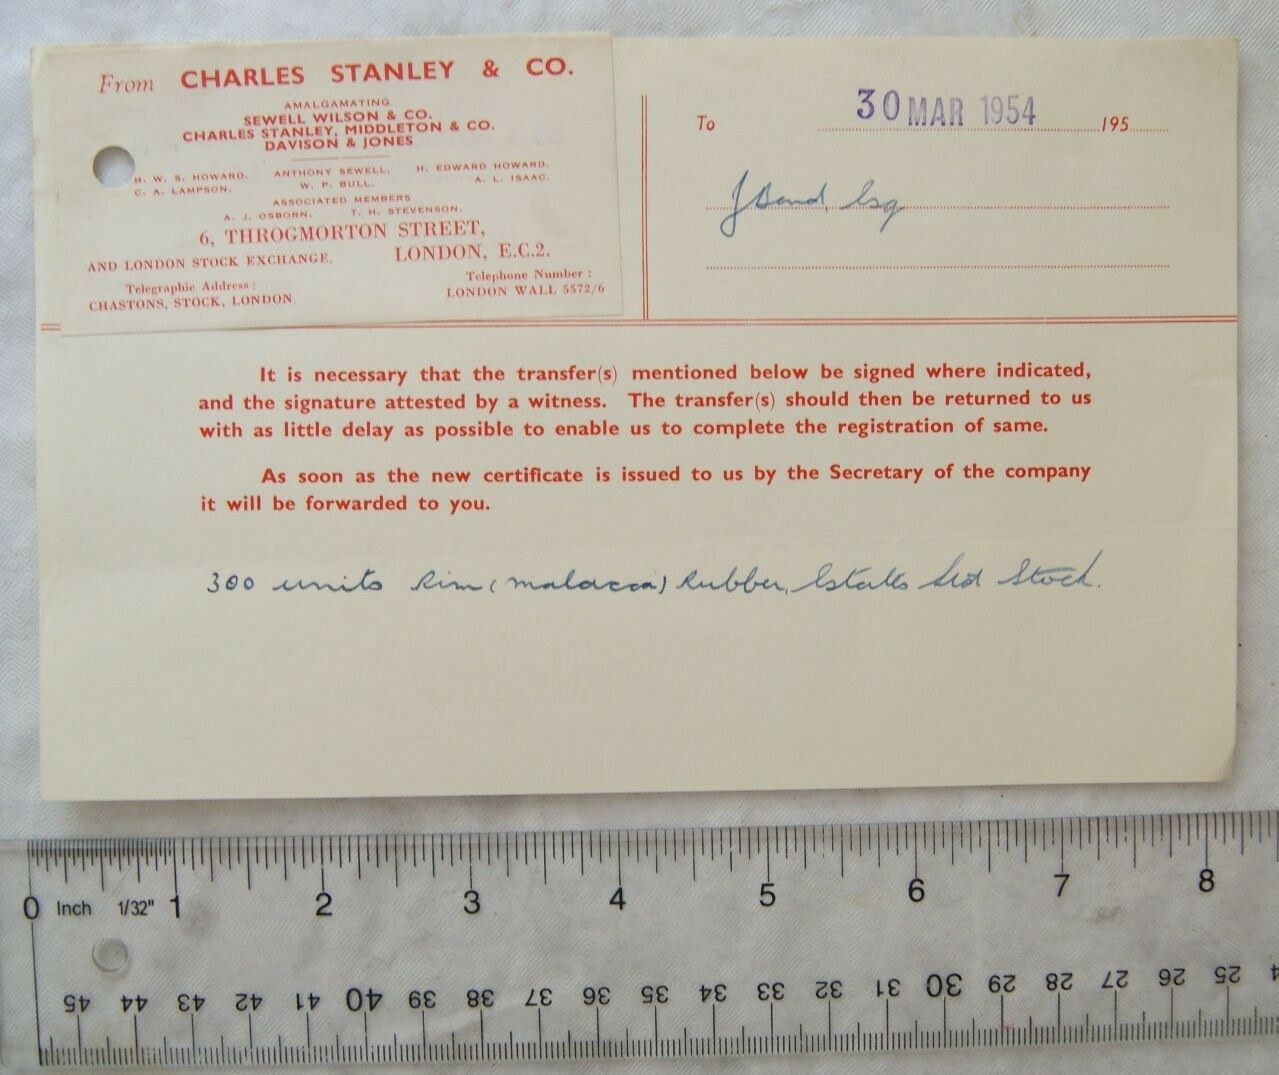 From CHARLES STANLEY & CO.
AMALGAMATING
SEWELL WILSON & CO.
CHARLES STANLEY, MIDDLETON & CO.
DAVISON & JONES
H. W. S. HOWARD. ANTHONY SEWELL. H. EDWARD HOWARD.
C. A. LAMPSON. W. P. BULL. A. L. ISAAC.
ASSOCIATED MEMBERS
A. J. OSBORN. T. H. STEVENSON.
6, THROGMORTON STREET,
AND LONDON STOCK EXCHANGE. LONDON, E.C.2.
Telegraphic Address: Telephone Number:
CHASTONS, STOCK, LONDON. LONDON WALL 5572/6
To 30 MAR 1954 195
J Band, Esq
It is necessary that the transfer(s) mentioned below be signed where indicated,
and the signature attested by a witness. The transfer(s) should then be returned to us
with as little delay as possible to enable us to complete the registration of same.
As soon as the new certificate is issued to us by the Secretary of the company
it will be forwarded to you.
300 units Rim (Malacca) Rubber Estates Ltd Stock.
0 Inch 1/32" 1 2 3 4 5 6 7 8
45 44 43 42 41 40 39 38 37 36 35 34 33 32 31 30 29 28 27 26 25